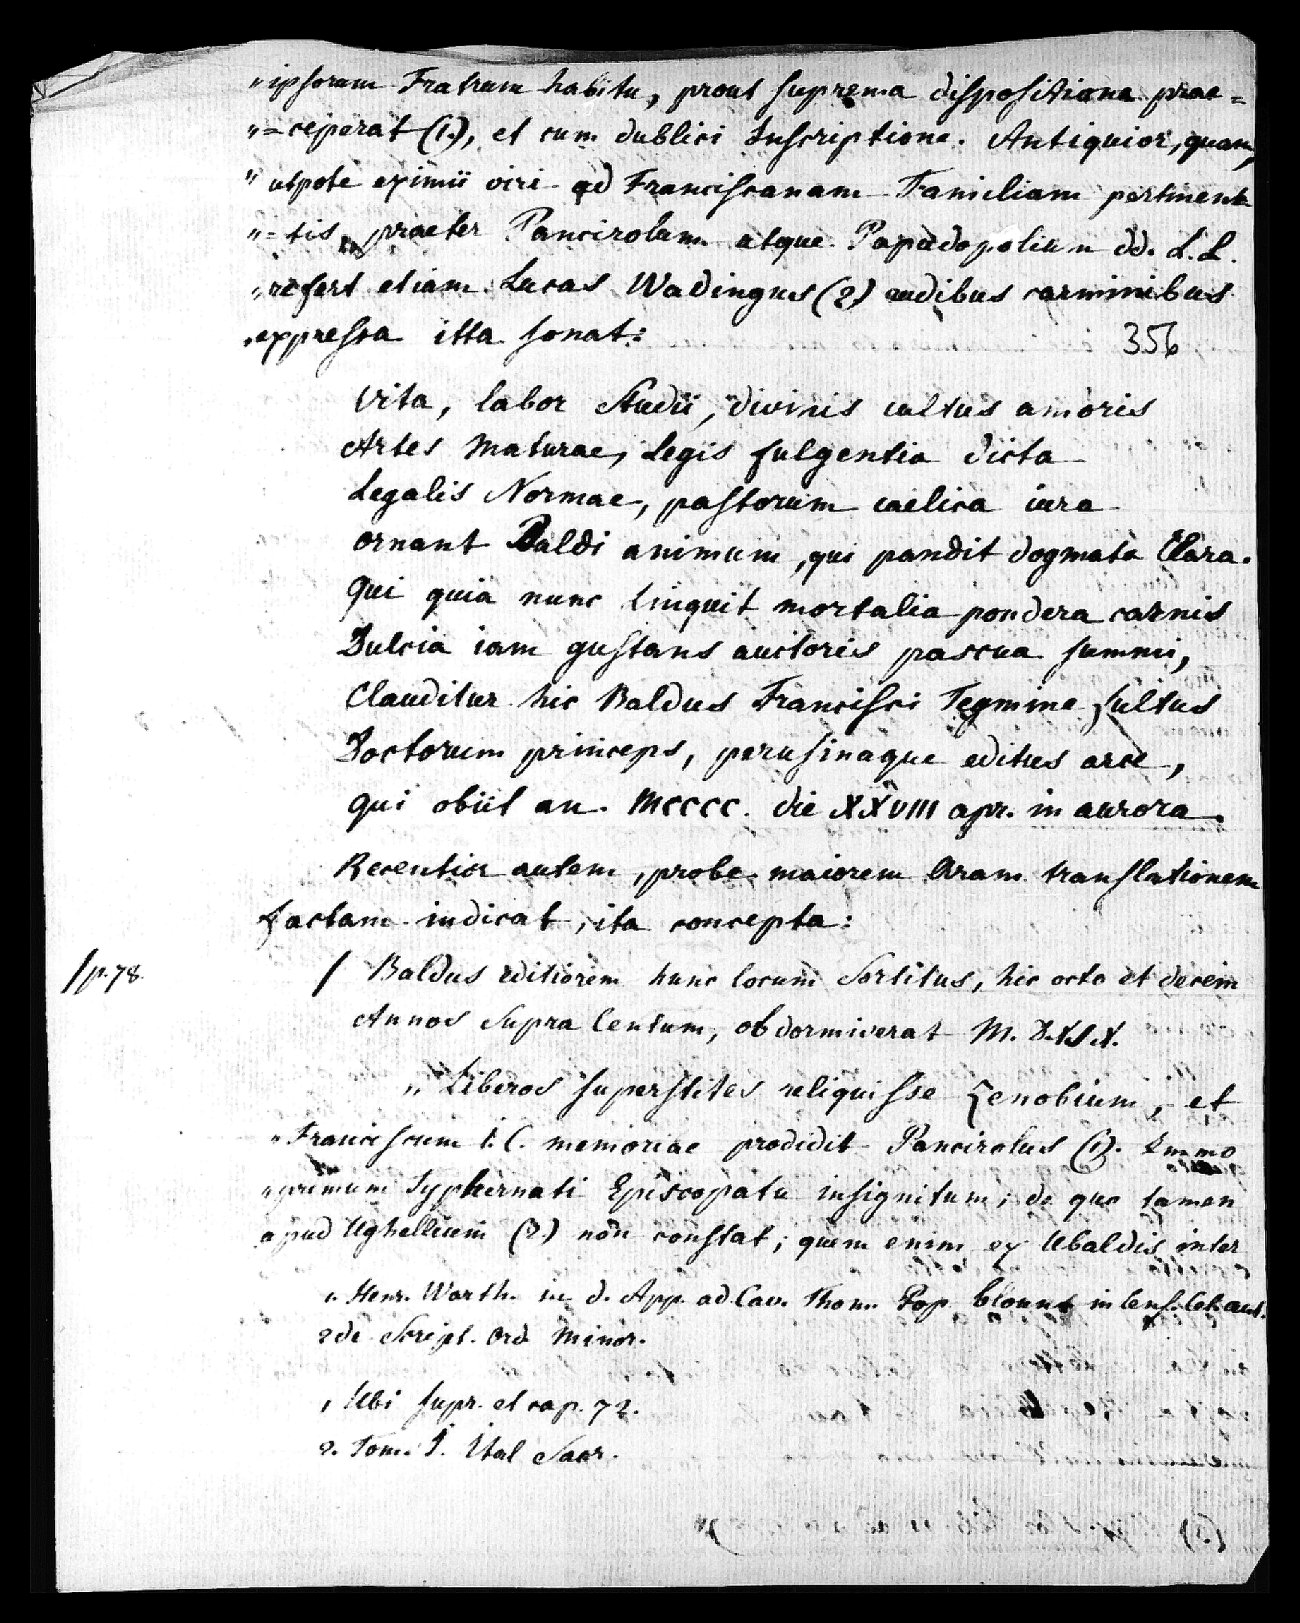 „ipsorum Fratrum habitu, prout suprema dispositione prae=
„=ceperat (1.), et cum dublici Inscriptione. Antiquior, quam,
„utpote eximii viri ad Franciscanam Familiam pertinen
„=tis, praeter Pancirolum atque Papadopolium dd. L.L.
„refert etiam Lucas Wadingus (2) rudibus carminibus
„expressa itta sonat:
356
Vita, labor studii, divinis cultus amoris
Artes Maturae, Legis fulgentia dicta
Legalis Normae, pastorum caelica iura
ornant Baldi animum, qui pandit dogmata Clara.
Qui quia nunc linquit mortalia pondera carnis
Dulcia iam gustans auctoris pascua summi,
Clauditur hic Baldus Francisci Tegmine fultus
Doctorum princeps, perusinaque editus arce,
qui obiit an. MCCCC. die XXVIII apr. in aurora.
Recentior autem, probe maiorem Aram translationem
factam indicat, ita concepta:
/p.78.
/ Baldus editiorem hunc locum Sortitus, hic octo et decem
Annos Supra Centum, obdormiverat M.
„Liberos superstites reliquisse Zenobium, et
„Franciscum I.C. memoriae prodidit Pancirolus (1). Immo
„primum Sypkernati Episcopatu insignitum, de quo tamen
apud Ughellium (2.) non constat; quem enim ex Ubaldis inter
1. Henr. Warth. in d. App. ad Cav. Thom. Pop. blount in Cens.
2 de Script. Ord Minor.
1 Ubi supr. et cap. 72.
2. Tom. I. Ital Sacr.